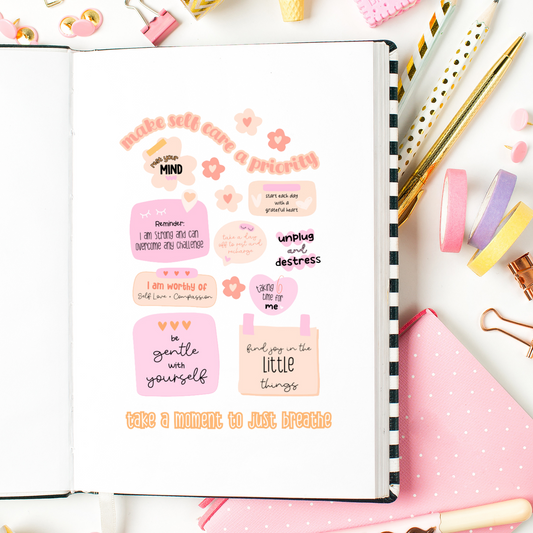 make self care a priority
rest your
MIND
start each day
with a
grateful heart
Reminder:
I am strong and can
overcome any challenge
take a day
off to rest and
recharge
unplug
and
destress
I am worthy of
Self Love + Compassion
taking
time for
me
be
gentle
with
yourself
find joy in the
LITTLE
things
take a moment to just breathe